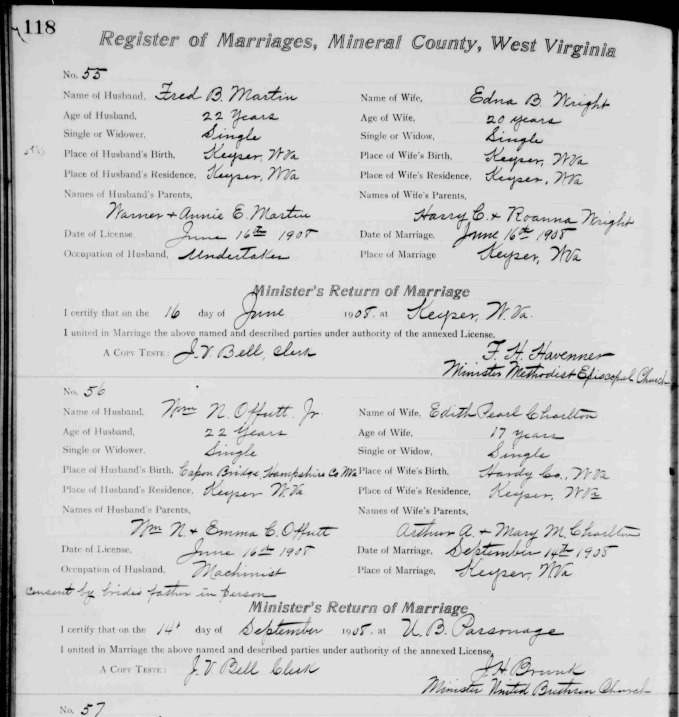 118
Register of Marriages, Mineral County, West Virginia
No. 55
Name of Husband, Fred B. Martin Name of Wife, Edna B. Wright
Age of Husband, 22 Years Age of Wife, 20 years
Single or Widower, Single Single or Widow, Single
Place of Husband's Birth, Keyser, W.Va Place of Wife's Birth, Keyser, W.Va
Place of Husband's Residence, Keyser, W.Va Place of Wife's Residence, Keyser, W.Va
Names of Husband's Parents, Names of Wife's Parents,
Warner + Annie E. Martin Harry C. + Roanna Wright
Date of License, June 16th 1908 Date of Marriage, June 16th 1908
Occupation of Husband, Undertaker Place of Marriage Keyser, W.Va
Minister's Return of Marriage
I certify that on the 16 day of June 1908. at Keyser, W. Va.
I united in Marriage the above named and described parties under authority of the annexed License,
A Copy Teste: J. V Bell, Clerk F. H. Havenner
Minister Methodist Episcopal Church
No. 56
Name of Husband, Wm N. Offutt, Jr. Name of Wife, Edith Pearl Charlton
Age of Husband, 22 Years Age of Wife, 17 years
Single or Widower, Single Single or Widow, Single
Place of Husband's Birth, Capon Bridge, Hampshire Co Wa Place of Wife's Birth, Hardy Co., W.Va
Place of Husband's Residence, Keyser W. Va Place of Wife's Residence, Keyser, W.Va
Names of Husband's Parents, Names of Wife's Parents,
Wm N. + Emma C. Offutt Arthur A. + Mary M. Charlton
Date of License, June 16th 1908 Date of Marriage, September 14th 1908
Occupation of Husband, Machinist Place of Marriage, Keyser, W.Va
consent by brides father in person
Minister's Return of Marriage
I certify that on the 14th day of September 1908. at U. B. Parsonage
I united in Marriage the above named and described parties under authority of the annexed License,
A Copy Teste: J. V Bell Clerk J. H. Brunk
Minister United Brethren Church
No. 57